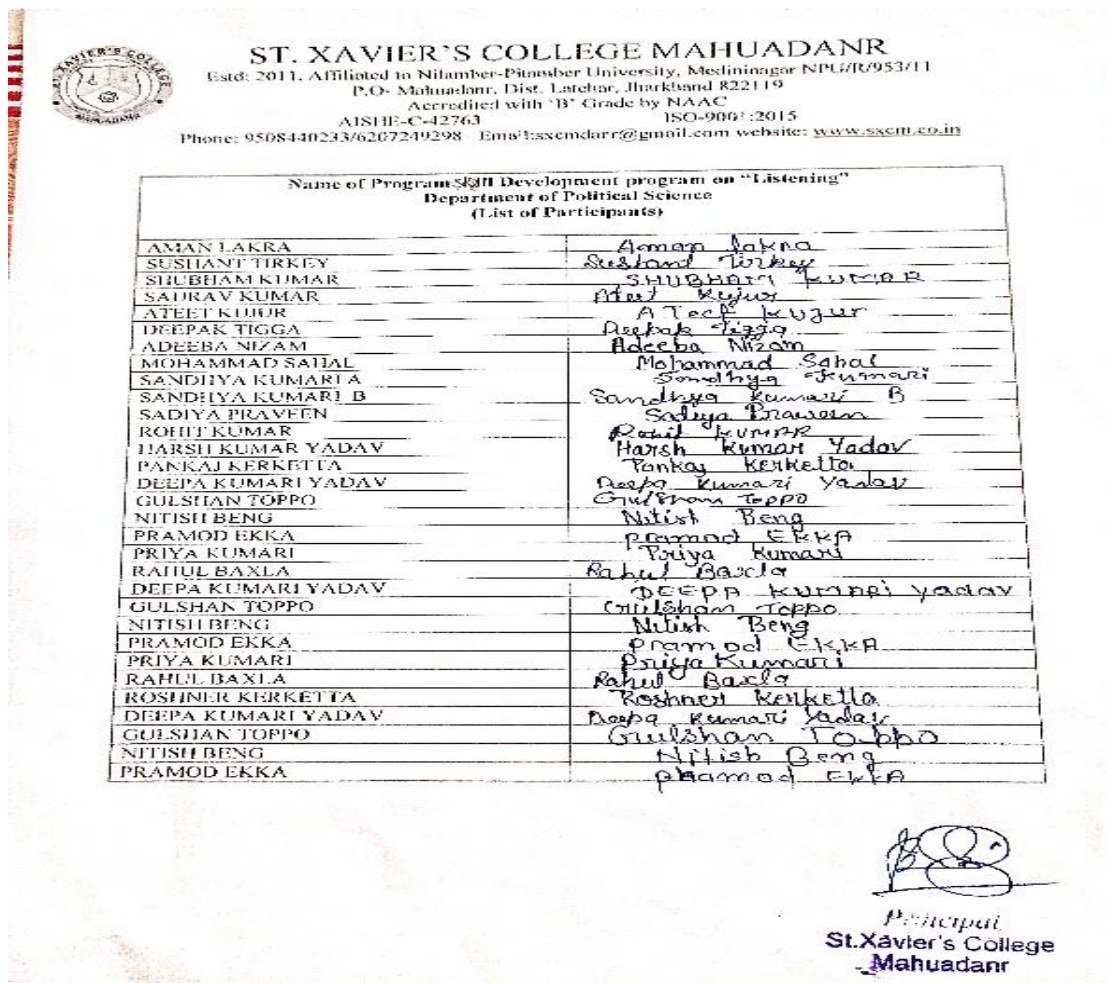 ST. XAVIER'S COLLEGE MAHUADANR
Estd: 2011, Affiliated to Nilamber-Pitamber University, Medininagar NPU/R/953/11
P.O- Mahuadanr, Dist. Latehar, Jharkhand 822119
Accredited with 'B' Grade by NAAC
AISHE-C-42763 ISO-9001:2015
Phone: 9508440233/6207249298 Email:sxcmdanr@gmail.com website: www.sxcm.co.in
Name of Program:Skill Development program on "Listening"
Department of Political Science
(List of Participants)
AMAN LAKRA Aman Lakra
SUSHANT TIRKEY Sushant Tirkey
SHUBHAM KUMAR SHUBHAM KUMAR
SAURAV KUMAR Ateet Kujur
ATEET KUJUR ATeet kujur
DEEPAK TIGGA Deepak Tigga
ADEEBA NIZAM Adeeba Nizam
MOHAMMAD SAHAL Mohammad Sahal
SANDHYA KUMARI A Sandhya Kumari
SANDHYA KUMARI B Sandhya Kumari B
SADIYA PRAVEEN Sadiya Praween
ROHIT KUMAR Rohit KUMAR
HARSH KUMAR YADAV Harsh Kumar Yadav
PANKAJ KERKETTA Pankaj Kerketta
DEEPA KUMARI YADAV Deepa Kumari Yadav
GULSHAN TOPPO Gulshan Toppo
NITISH BENG Nitish Beng
PRAMOD EKKA pramod EKKA
PRIYA KUMARI Priya Kumari
RAHUL BAXLA Rahul Baxla
DEEPA KUMARI YADAV DEEPA KUMARI yadav
GULSHAN TOPPO Gulshan Toppo
NITISH BENG Nitish Beng
PRAMOD EKKA Pramod EKKA
PRIYA KUMARI Priya Kumari
RAHUL BAXLA Rahul Baxla
ROSHNER KERKETTA Roshner Kerketta
DEEPA KUMARI YADAV Deepa Kumari Yadav
GULSHAN TOPPO Gulshan Toppo
NITISH BENG Nitish Beng
PRAMOD EKKA pramod EKKA
Principal
St.Xavier's College
Mahuadanr